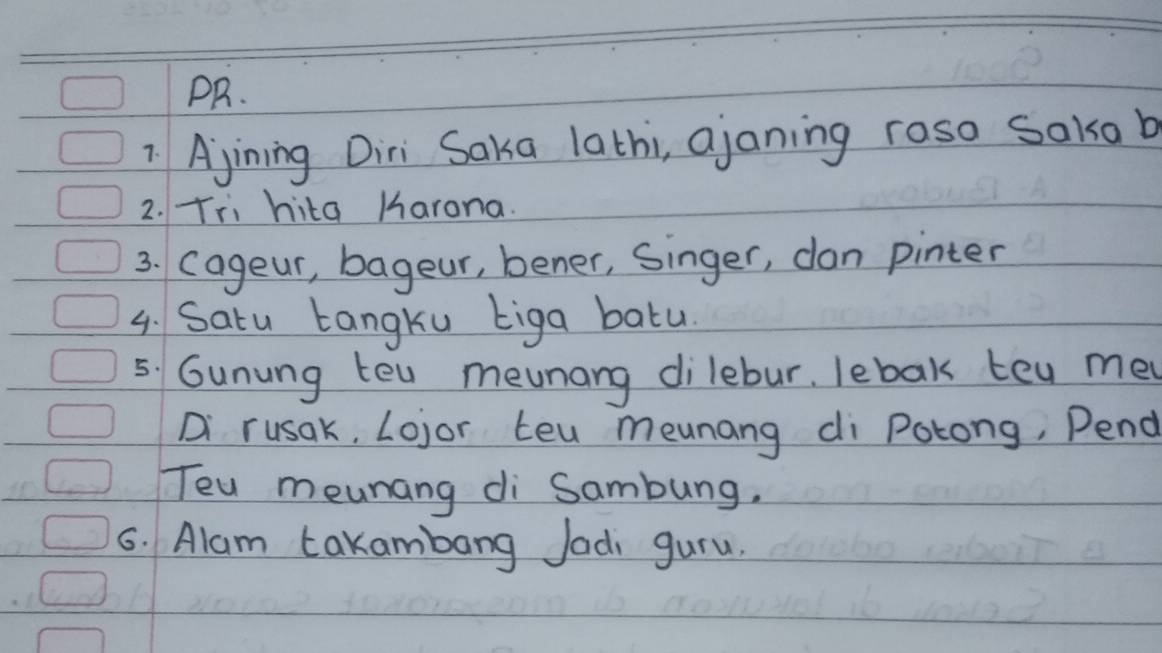 PR.
1. Ajining Diri Saka lathi, ajaning rasa Saka b
2. Tri hita Karana.
3. Cageur, bageur, bener, Singer, dan Pinter
4. Satu tangku tiga batu.
5. Gunung teu meunang di lebur. lebak teu meu
Di rusak. Lojor teu meunang di Potong, Pend
Teu meunang di Sambung.
6. Alam takambang Jadi guru.